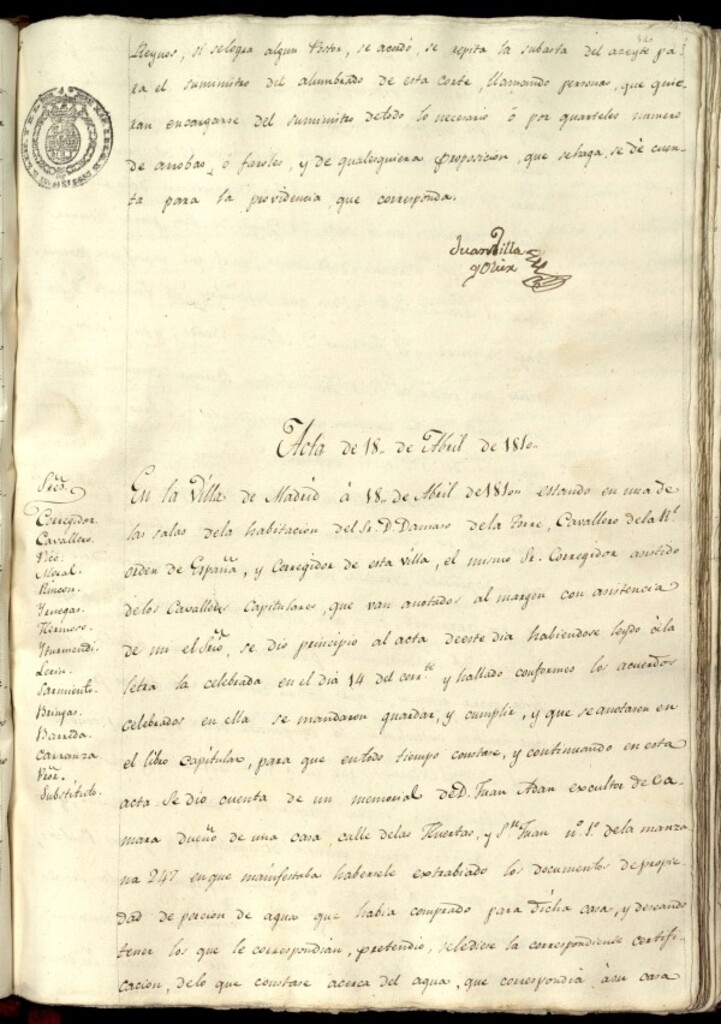 Reynos, si se logra algun Postor, se acordó, se repita la subasta del azeyte pa
ra el suministro del alumbrado de esta corte, llamando personas, que quie
ran encargarse del suministro de todo lo necesario ó por quarteles numero
de arrobas, ó faroles, y de qualesquiera proposicion, que se haga, se dé cuen
ta para la providencia, que corresponda.
Juan Villa
y Olier
Acta de 18 de Abril de 1810
Sres.
Corregidor.
Cavallero.
Pico.
Moral.
Rincon.
Yanegas.
Hermoso.
Yturmendi.
Lerin.
Sarmiento.
Bringas.
Barreda.
Carranza.
Pror.
Substituto.
En la Villa de Madrid á 18 de Abril de 1810 estando en una de
las salas dela habitacion del Sr. D. Damaso dela Torre, Cavallero dela Rl.
orden de España, y Corregidor de esta villa, el mismo Sr. Corregidor asistido
delos Cavalleros Capitulares, que van anotados al margen con asistencia
de mi el Srio, se dio principio al acta de este dia habiendose leydo á la
letra la celebrada en el dia 14 del corrte. y hallado conformes los acuerdos
celebrados en ella se mandaron guardar, y cumplir, y que se anotasen en
el libro Capitular, para que en todo tiempo constase, y continuando en esta
acta se dio cuenta de un memorial de D. Juan Adan escultor de Ca
mara dueño de una casa calle delas Huertas, y Sn. Juan nº. 1º. dela manza
na 247 en que manifestaba habersele extrabiado los documentos de propie
dad de porcion de agua que habia comprado para dicha casa, y deseando
tener los que le correspondian, pretendio, se le diese la correspondiente certifi
cacion, de lo que constase acerca del agua, que correspondia á su casa